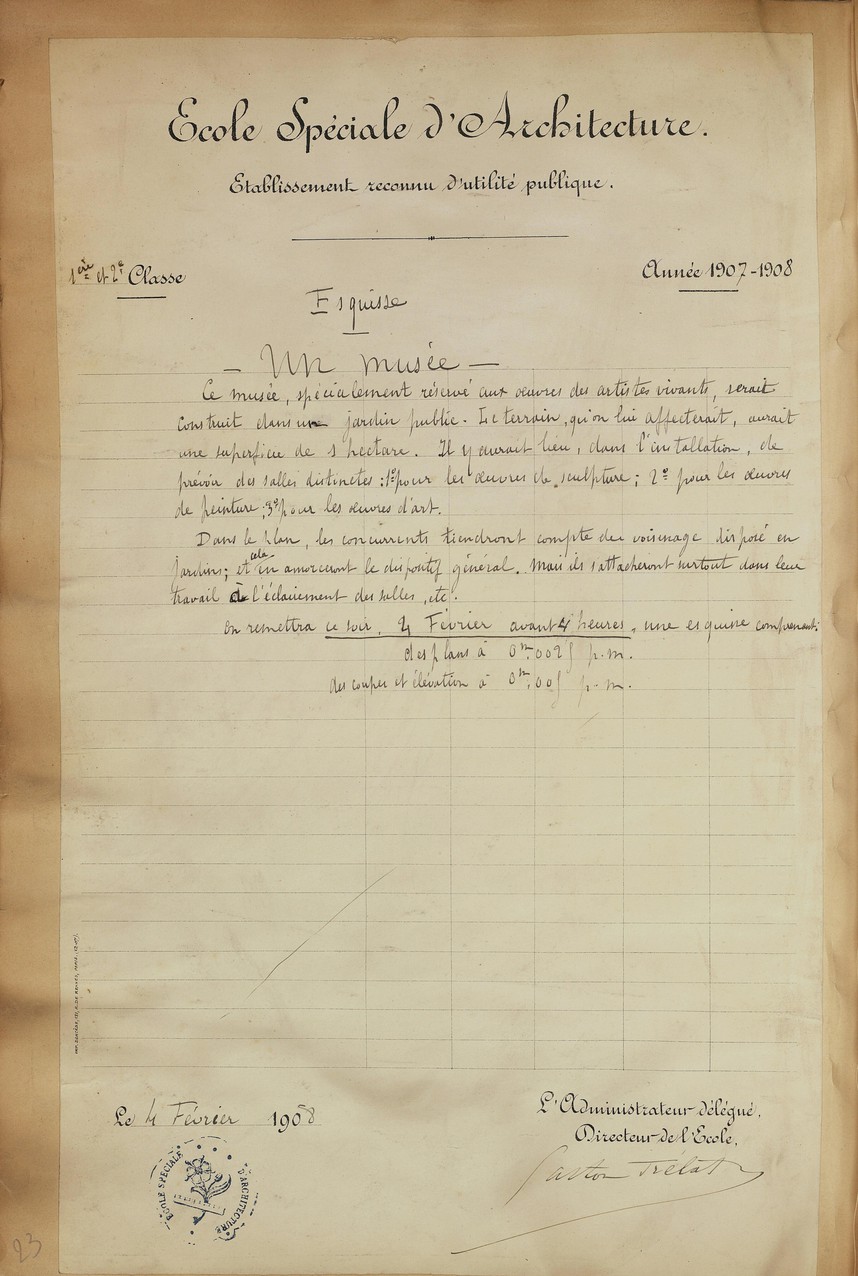 Ecole Spéciale d'Architecture.
Etablissement reconnu d'utilité publique.
1ère et 2e Classe
Année 1907-1908
Esquisse
- Un musée -
Ce musée, spécialement réservé aux œuvres des artistes vivants, serait
construit dans un jardin public. Le terrain, qu'on lui affecterait, aurait
une superficie de 1 hectare. Il y aurait lieu, dans l'installation, de
prévoir des salles distinctes : 1º pour les œuvres de sculpture ; 2º pour les œuvres
de peinture ; 3º pour les œuvres d'art.
Dans le plan, les concurrents tiendront compte du voisinage disposé en
jardins ; et cela en amorceront le dispositif général. Mais ils s'attacheront surtout dans leur
travail à l'éclairement des salles, etc.
On remettra ce soir, 4 Février avant 4 heures, une esquisse comprenant :
des plans à 0m,0025 p.m.
des coupes et élévation à 0m,005 p.m.
Le 4 Février 1908
L'Administrateur délégué,
Directeur de l'Ecole,
Gaston Trélat
ECOLE SPÉCIALE D'ARCHITECTURE
23